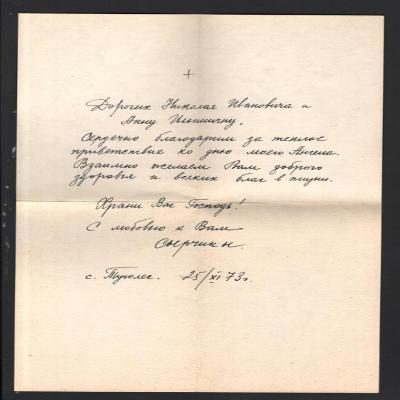 +
Дорогих Николая Ивановича и
Анну Ильиничну,
Сердечно благодарим за теплое
приветствие ко дню моего Ангела.
Взаимно желаем Вам доброго
здоровья и всяких благ в жизни.
Храни Вас Господь!
С любовью к Вам
Сырчины.
с. Туголес. 25/XI 73г.